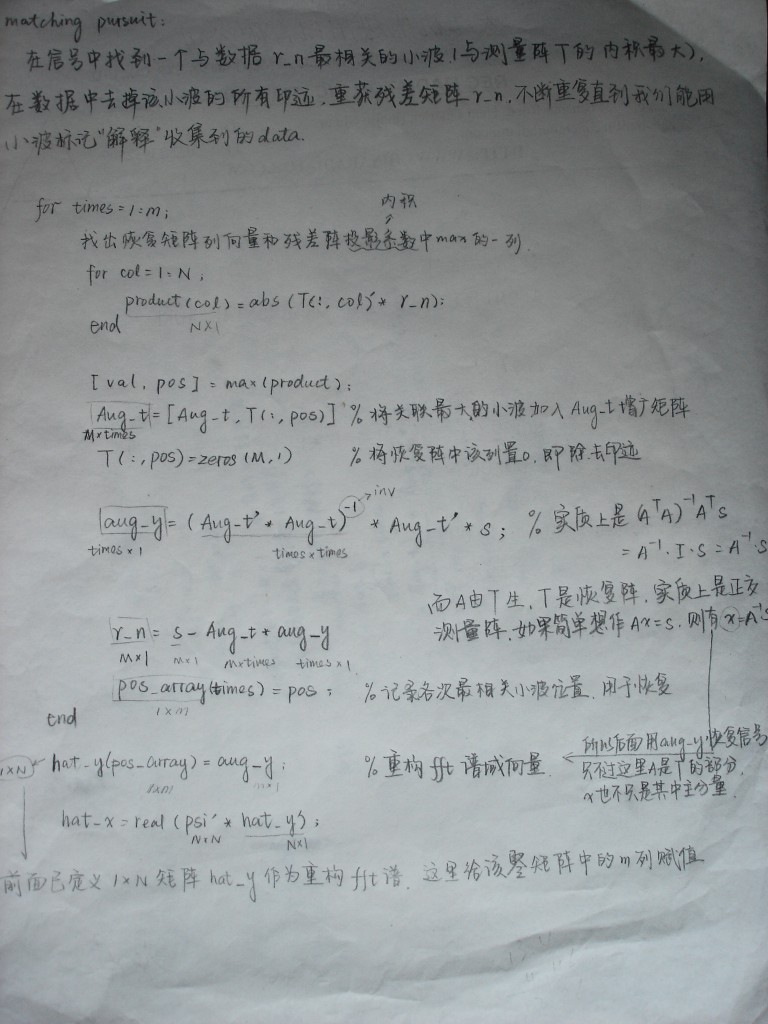 matching pursuit:
在信号中找到一个与数据 r_n 最相关的小波(与测量阵T的内积最大),
在数据中去掉该小波的所有印迹,重获残差矩阵 r_n,不断重复直到我们能用
小波标记"解释"收集到的data.
for times=1:m;
内积
找出恢复矩阵列向量和残差阵投影系数中max的一列.
for col=1:N;
product(col)=abs(T(:,col)'* r_n);
end N×1
[val, pos] = max(product);
Aug_t=[Aug_t, T(:,pos)] %将关联最大的小波加入Aug_t增广矩阵
M×times
T(:,pos)=zeros(M,1) %将恢复阵中该列置0,即除去印迹
aug_y=(Aug_t'* Aug_t)^-1 * Aug_t' * s; %实质上是(A^TA)^-1A^Ts
→inv
times×1 times×times =A^-1·I·S=A^-1·S
而A由T生,T是恢复阵,实质上是正交
r_n = s-Aug_t+aug_y 测量阵,如果简单想作Ax=s,则有x=A^-1s
M×1 M×1 M×times times×1
pos_array(times)=pos; %记录各次最相关小波位置,用于恢复
1×m
end
1×N hat_y(pos_array)=aug_y; %重构fft谱域向量 ← 所以后面用aug_y恢复信号
1×m m×1 只不过这里A是T的部分,
x也不只是其中主分量.
hat_x=real(psi'* hat_y);
N×N N×1
前面已定义1×N矩阵hat_y作为重构fft谱.这里给该矩阵中的m列赋值